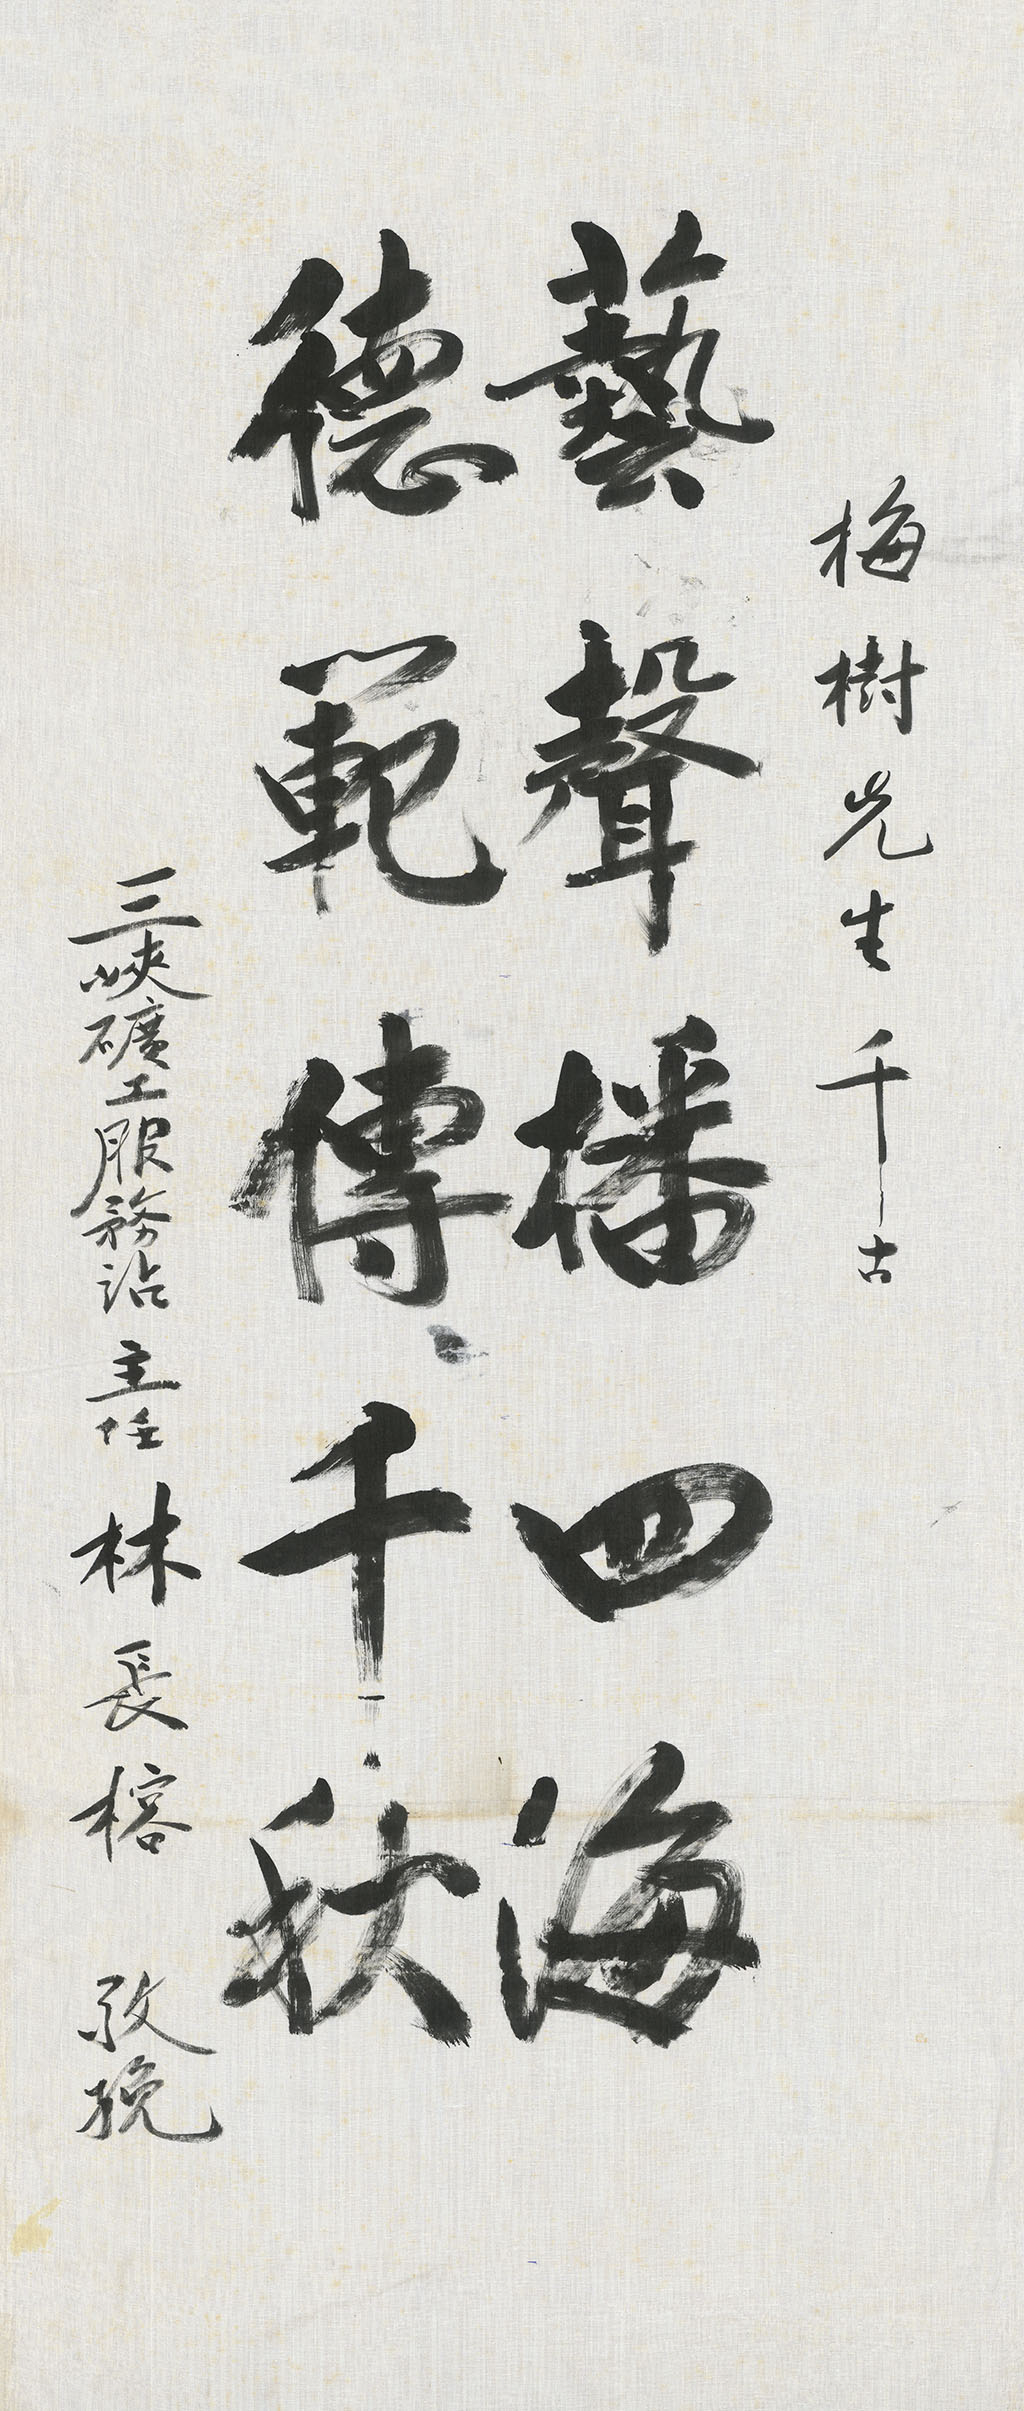 梅樹先生千古
藝聲播四海
德範傳千秋
三峽礦工服務站主任林長榕敬挽